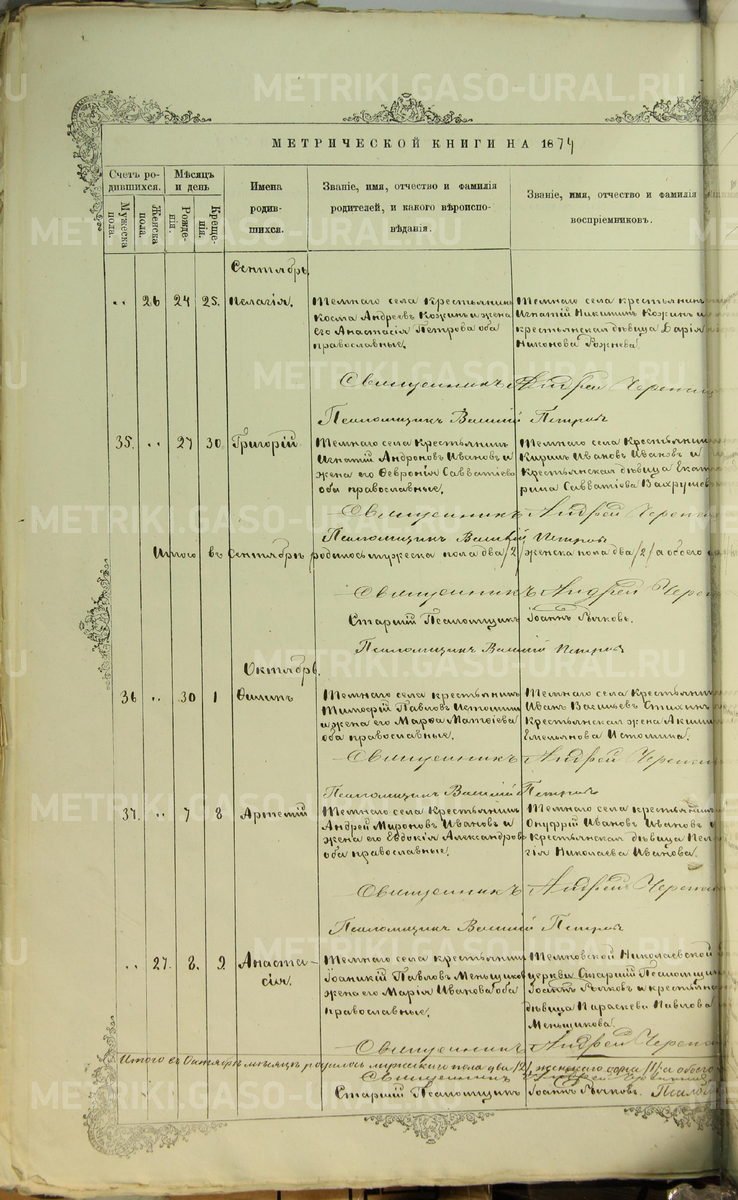 METRIKI.GASO-URAL.RU
МЕТРИЧЕСКОЙ КНИГИ НА 1874
Счетъ ро-
дившихся.
Мужеска
пола.
Женска
пола.
Мѣсяцъ
и день
Рожде-
нія.
Креще-
нія.
Имена
родив-
шихся.
Званіе, имя, отчество и фамилія
родителей, и какого вѣроиспо-
вѣданія.
Званіе, имя, отчество и фамилія
воспріемниковъ.
Сентябрь.
„ 26 24 25. Пелагія.
Темнаго села крестьянинъ
Косма Андреевъ Кожинъ и жена
его Анастасія Петрова оба
православные.
Темнаго села крестьянинъ
Игнатій Никитинъ Кожинъ и
крестьянская дѣвица Дарія
Никонова
Священникъ Андрей
Псаломщикъ Василій Петровъ
35. „ 27 30. Григорій
Темнаго села крестьянинъ
Игнатій Андроновъ Ивановъ и
жена его Февронія Савватіева
оби православные.
Темнаго села крестьянинъ
Кирилъ Ивановъ Ивановъ и
крестьянская дѣвица Екате
рина Савватіова
Священникъ Андрей
Псаломщикъ Василій Петровъ
Итого въ Сентябрѣ родилось мужеска пола два /2/ женска пола два /2/ а обоего
Священникъ Андрей
Старшій Псаломщикъ Іоаннъ
Псаломщикъ Василій Петровъ
Октябрь.
36 „ 30 1 Филипъ
Темнаго села крестьянинъ
Тимофій Павловъ Истоминъ
и жена его Марѳа Матѳіева
оба православные.
Темнаго села крестьянинъ
Иванъ Васильевъ
крестьянская жена
Емельянова Истомина.
Священникъ Андрей
Псаломщикъ Василій Петровъ
37. „ 7 8 Артемій
Темнаго села крестьянинъ
Андрей Мироновъ Ивановъ и
жена его Евдокія Александрова
оба православные.
Темнаго села крестьянинъ
Онуфрій Ивановъ Ивановъ и
крестьянская дѣвица Пела
гія Николаева Иванова.
Священникъ Андрей
Псаломщикъ Василій Петровъ
„ 27. 8. 9 Анаста-
сія.
Темнаго села крестьянинъ
Іоаникій Павловъ Меньщиковъ
жена его Марія Иванова оба
православные.
Николаевской
церкви Старшій Псаломщикъ
Іоаннъ и крестьянская
дѣвица Параскева Павлова
Меньщикова.
Священникъ Андрей
Итого въ Октябрѣ мѣсяцѣ родилось мужескаго пола два /2/ женскаго одна /1/ а обоего
Священникъ Андрей
Старшій Псаломщикъ Іоаннъ